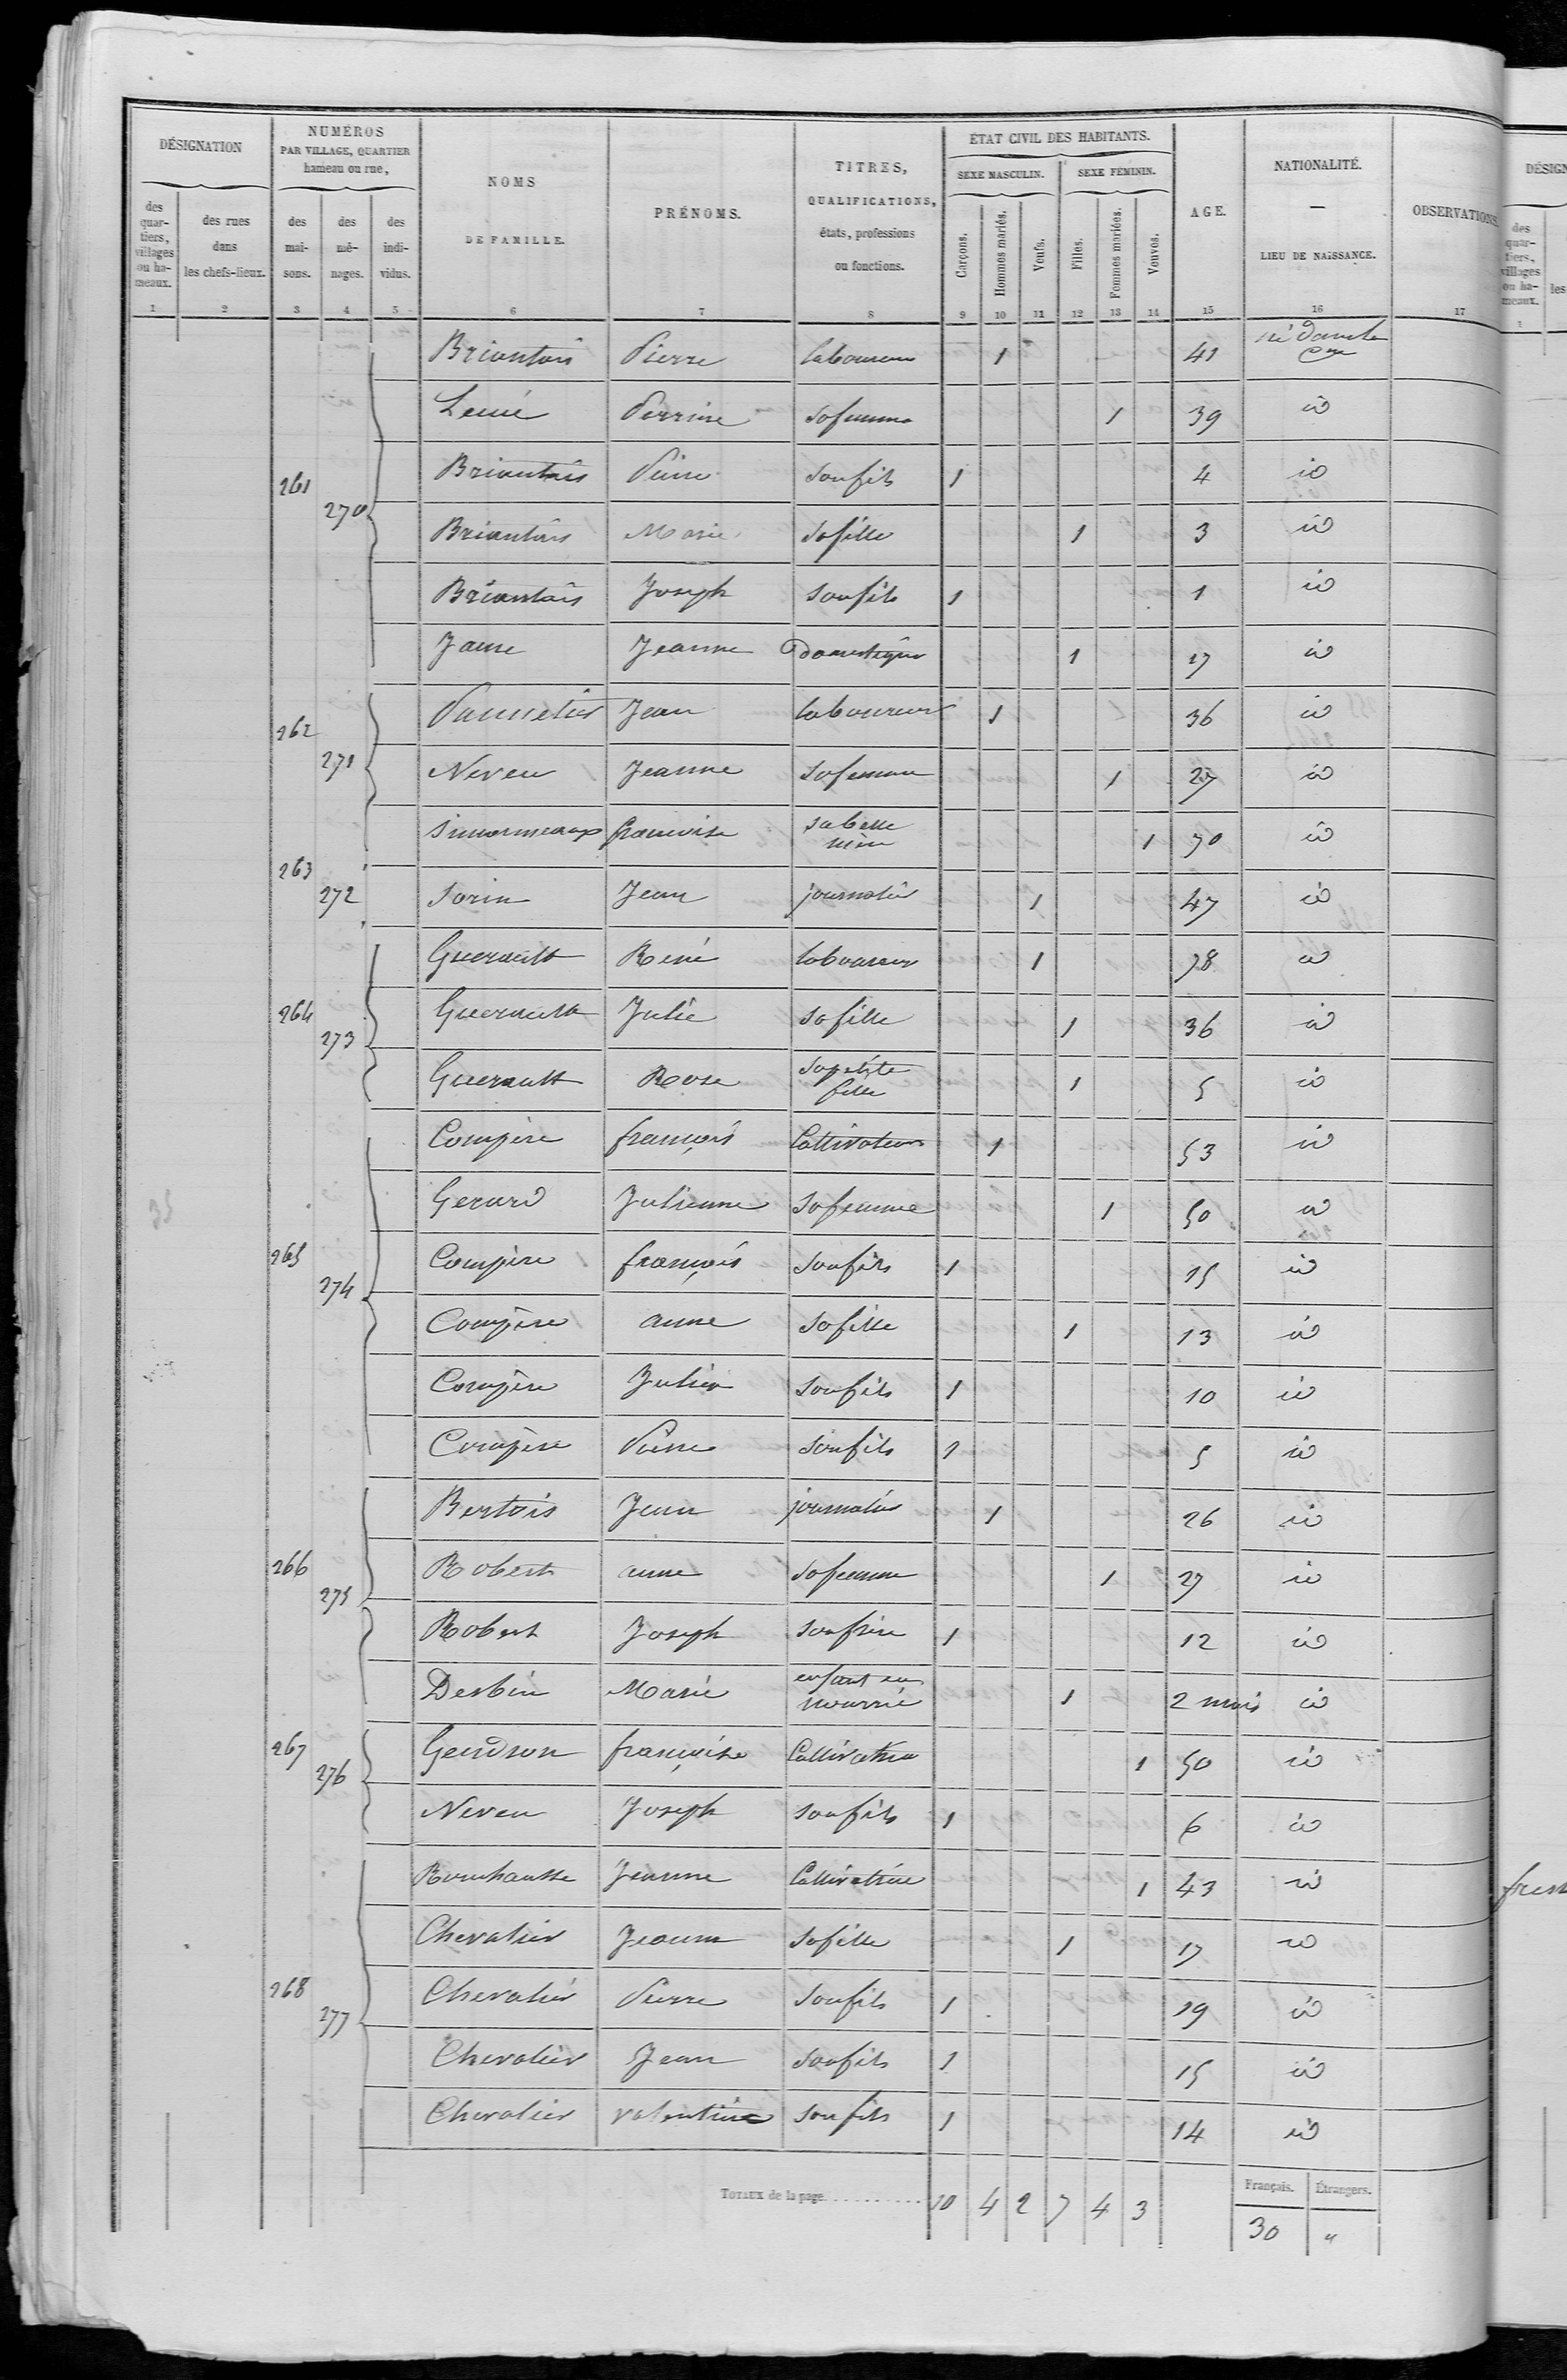 DÉSIGNATION
NUMÉROS
PAR VILLAGE, QUARTIER
hameau ou rue,
NOMS
DE FAMILLE.
PRÉNOMS.
TITRES,
QUALIFICATIONS,
états, professions
ou fonctions.
ÉTAT CIVIL DES HABITANTS.
SEXE MASCULIN.
SEXE FÉMININ.
AGE.
NATIONALITÉ.
—
LIEU DE NAISSANCE.
OBSERVATIONS
des quar-tiers, villages ou ha-meaux.
des rues dans les chefs-lieux.
des mai-sons.
des mé-nages.
des indi-vidus.
Garçons.
Hommes mariés.
Veufs.
Filles.
Femmes mariées.
Veuves.
1 2 3 4 5 6 7 8 9 10 11 12 13 14 15 16 17
Briantais Pierre laboureur 1 41 né dans la Cne
Perrine sa femme 1 39 id
261 270 Briantais Pierre son fils 1 4 id
Briantais Marie sa fille 1 3 id
Briantais Joseph son fils 1 1 id
Jeanne domestique 1 17 id
262 271 Pannetier Jean laboureur 1 36 id
Neveu Jeanne sa femme 1 27 id
Simonneaux francoise sa belle mère 1 70 id
263 272 Sorin Jean journalier 1 47 id
Guerault René laboureur 1 78 id
264 273 Guerault Julie sa fille 1 36 id
Guerault Rose sa petite fille 1 5 id
Compère françois Cultivateur 1 53 id
Gerard Julienne sa femme 1 50 id
265 274 Compère françois son fils 1 15 id
Compère anne sa fille 1 13 id
Compère Julien son fils 1 10 id
Compère Pierre son fils 1 5 id
Bertois Jean journalier 1 26 id
266 275 Robert anne sa femme 1 27 id
Robert Joseph son frère 1 12 id
Derbin Marie enfant en nourrie 1 2 mois id
267 276 Gendron françoise Cultivatrice 1 50 id
Neveu Joseph son fils 1 6 id
Jeanne Cultivatrice 1 43 id
Chevalier Jeanne sa fille 1 17 id
268 277 Chevalier Pierre son fils 1 19 id
Chevalier Jean son fils 1 15 id
Chevalier valentine son fils 1 14 id
TOTAUX de la page 10 4 2 7 4 3
Français. Étrangers.
30 "